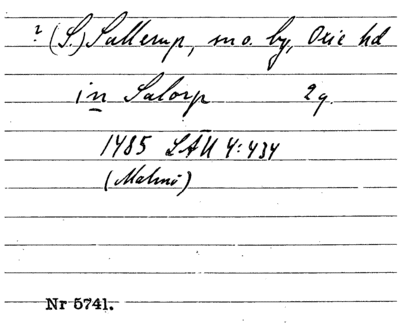 ? (S.) Sallerup, mo. by, Oxie hd
in Salorp 2g.
1485 LÄU 4:434
(Malmö)
Nr 5741.